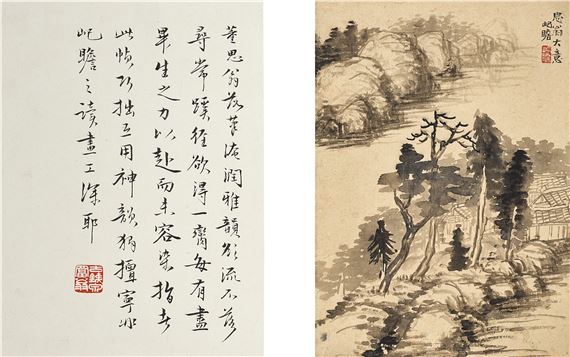 董思翁落筆淹潤雅韻欲流不落
尋常蹊徑欲得一臠每有盡
畢生之力以赴而未容染指者
此幀巧拙互用神韻獨擅寧非
屺瞻之讀畫工深耶
思翁大意
屺瞻